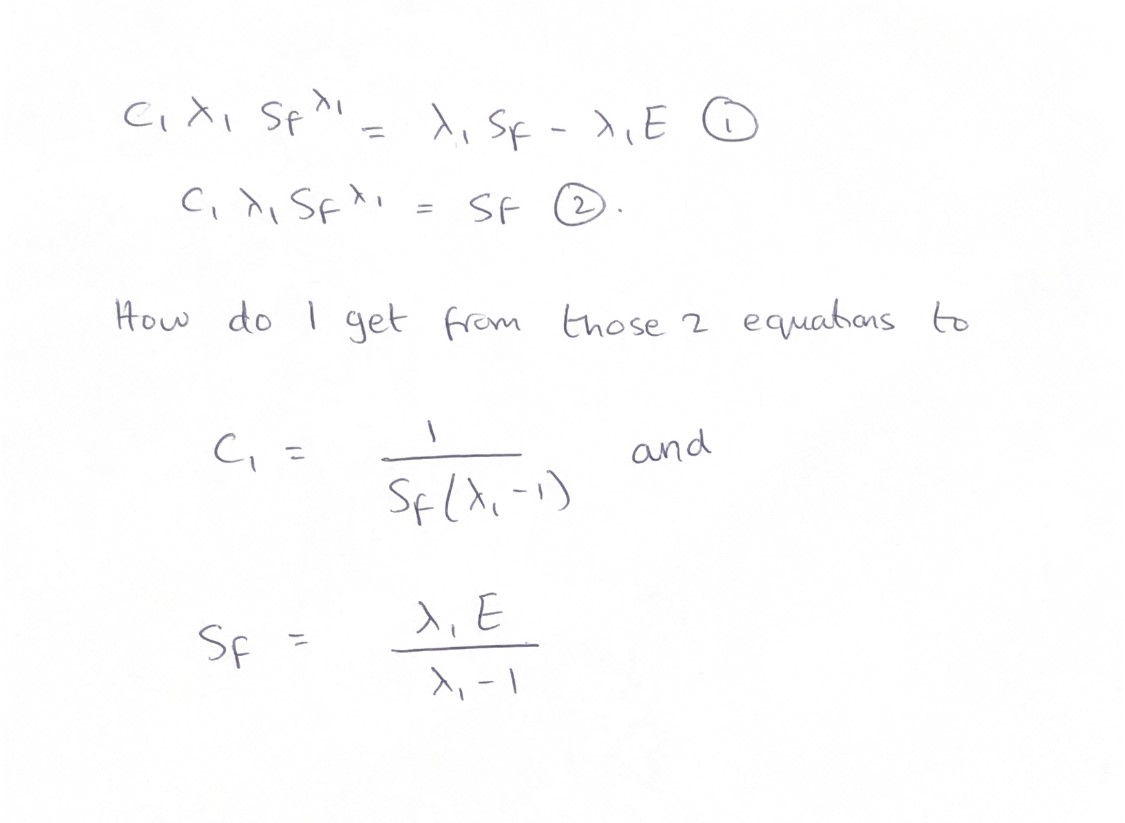 C₁ λ₁ Sf^λ₁ = λ₁ Sf - λ₁ E ①
C₁ λ₁ Sf^λ₁ = Sf ②.
How do I get from those 2 equations to
C₁ = 1 / Sf(λ₁-1) and
Sf = λ₁ E / λ₁-1